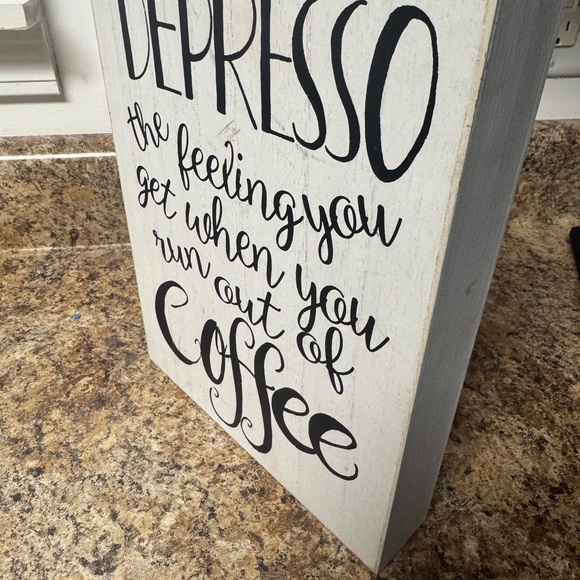 DEPRESSO
the feeling you
get when you
run out of
Coffee